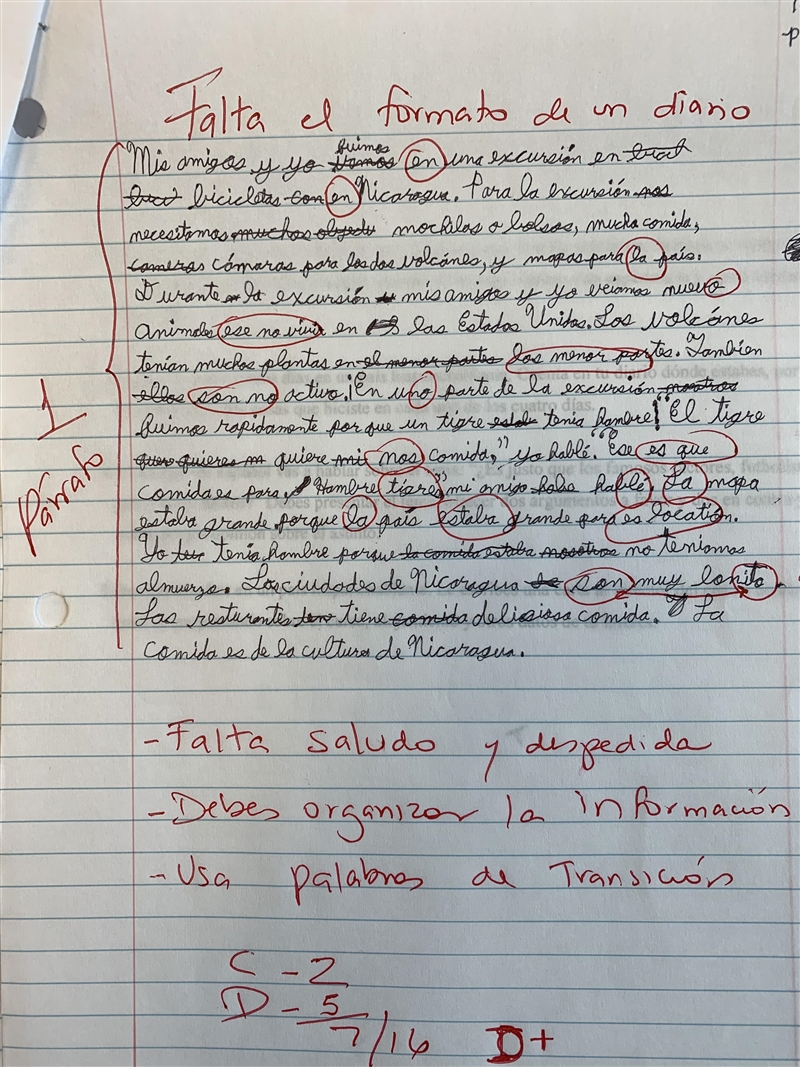 Falta el formato de un diario
Mis amigos y yo fuimos en una excursión en
bicicletas con en Nicaragua. Para la excursión nos
necesitamos muchos mochilas o bolsas, mucha comida,
cameras cámaras para los dos volcánes, y mapas para la país.
Durante la excursión mis amigos y yo veíamos nuevo
animales ese no vivir en las Estados Unidos. Los volcánes
tenían muchos plantas en el menor partes los menor partes. Tambien
ellos son no activo. ¡En uno parte de la excursión nosotros
fuimos rapidamente por que un tigre tenía hambre! "El tigre
quiere mi nos comida," yo hablé. "Ese es que
comida es para Hambre tigre" mi amigo habló. La mapa
estaba grande porque la país estaba grande para es location.
Yo tenía hambre porque la comida estaba nosotros no teníamos
almuerzo. Los ciudades de Nicaragua son muy bonito.
Las resturantes tiene comida delisiosa comida. La
comida es de la cultura de Nicaragua.
1
Párrafo
- Falta saludo y despedida
- Debes organizar la información
- Usa palabras de Transición
C - 2
D - 5
7/16 D+